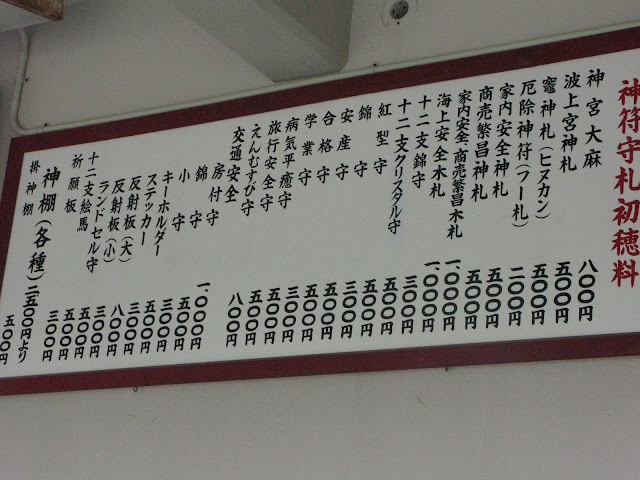 神符守札初穂料
神宮大麻 八〇〇円
波上宮神札 五〇〇円
竈神札(ヒヌカン) 五〇〇円
厄除神符(フー札) 二〇〇円
家内安全神札 五〇〇円
商売繁昌神札 五〇〇円
家内安全、商売繁昌木札 一、〇〇〇円
海上安全木札 一、〇〇〇円
十二支錦守 三〇〇円
十二支クリスタル守 五〇〇円
紅型守 五〇〇円
錦守 三〇〇円
安産守 五〇〇円
合格守 五〇〇円
学業守 三〇〇円
病気平癒守 五〇〇円
旅行安全守 五〇〇円
えんむすび守 八〇〇円
交通安全
房付守 一、〇〇〇円
錦守 五〇〇円
小守 三〇〇円
キーホルダー 五〇〇円
ステッカー 三〇〇円
反射板(大) 八〇〇円
反射板(小) 三〇〇円
ランドセル守 五〇〇円
十二支絵馬 五〇〇円
祈願板 三〇〇円
神棚(各種) 二五〇〇円より
掛神棚 五〇〇円